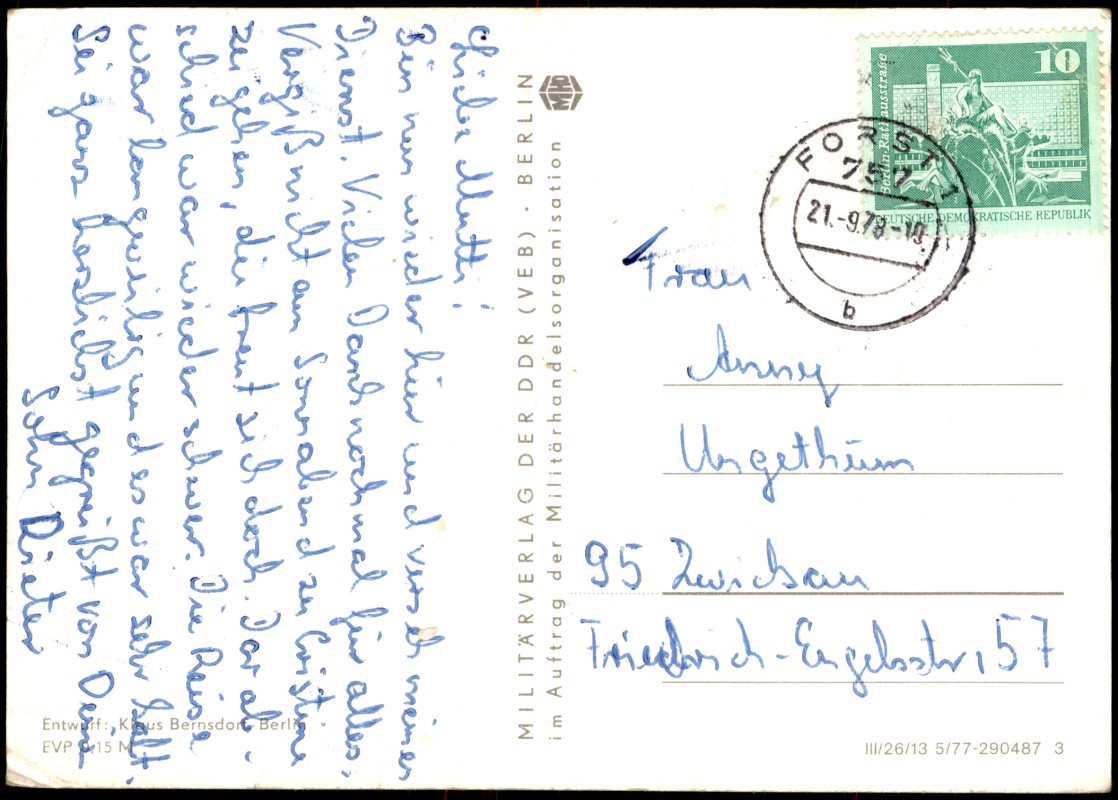 Liebe Mutti!
Bin nun wieder hier und verseh meinen
Dienst. Vielen Dank nochmal für alles.
Vergiß nicht am Sonnabend zu Cristine
zu gehen, die freut sich doch. Der Ab-
schied war wieder schwer. Die Reise
war langweilig und es war sehr kalt.
Sei ganz herzlichst gegrüßt von Dein
Sohn Dieter
Entwurf: Klaus Bernsdorf, Berlin
EVP 0,15 M
MILITÄRVERLAG DER DDR (VEB) · BERLIN
im Auftrag der Militärhandelsorganisation
MHO
10
Berlin-Rathausstraße
DEUTSCHE DEMOKRATISCHE REPUBLIK
FORST 1
757
21.-9.78-10
b
Frau
Anny
Ungethüm
95 Zwickau
Friedrich-Engelsstr, 57
III/26/13 5/77-290487 3